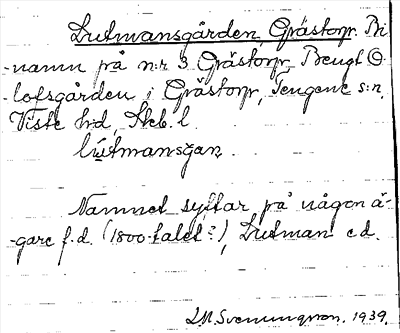 Lutmansgården, Grästorp. Bi-
-namn på n:r 3 Grästorp, Bengt O-
-lofsgården i Grästorp, Tengene s:n,
Viste hd, Skb. l.
lutmansgan.
Namnet syftar på någon ä-
-gare f.d. (1800-talet?), Lutman e.d.
L.M. Svenungsson. 1939.